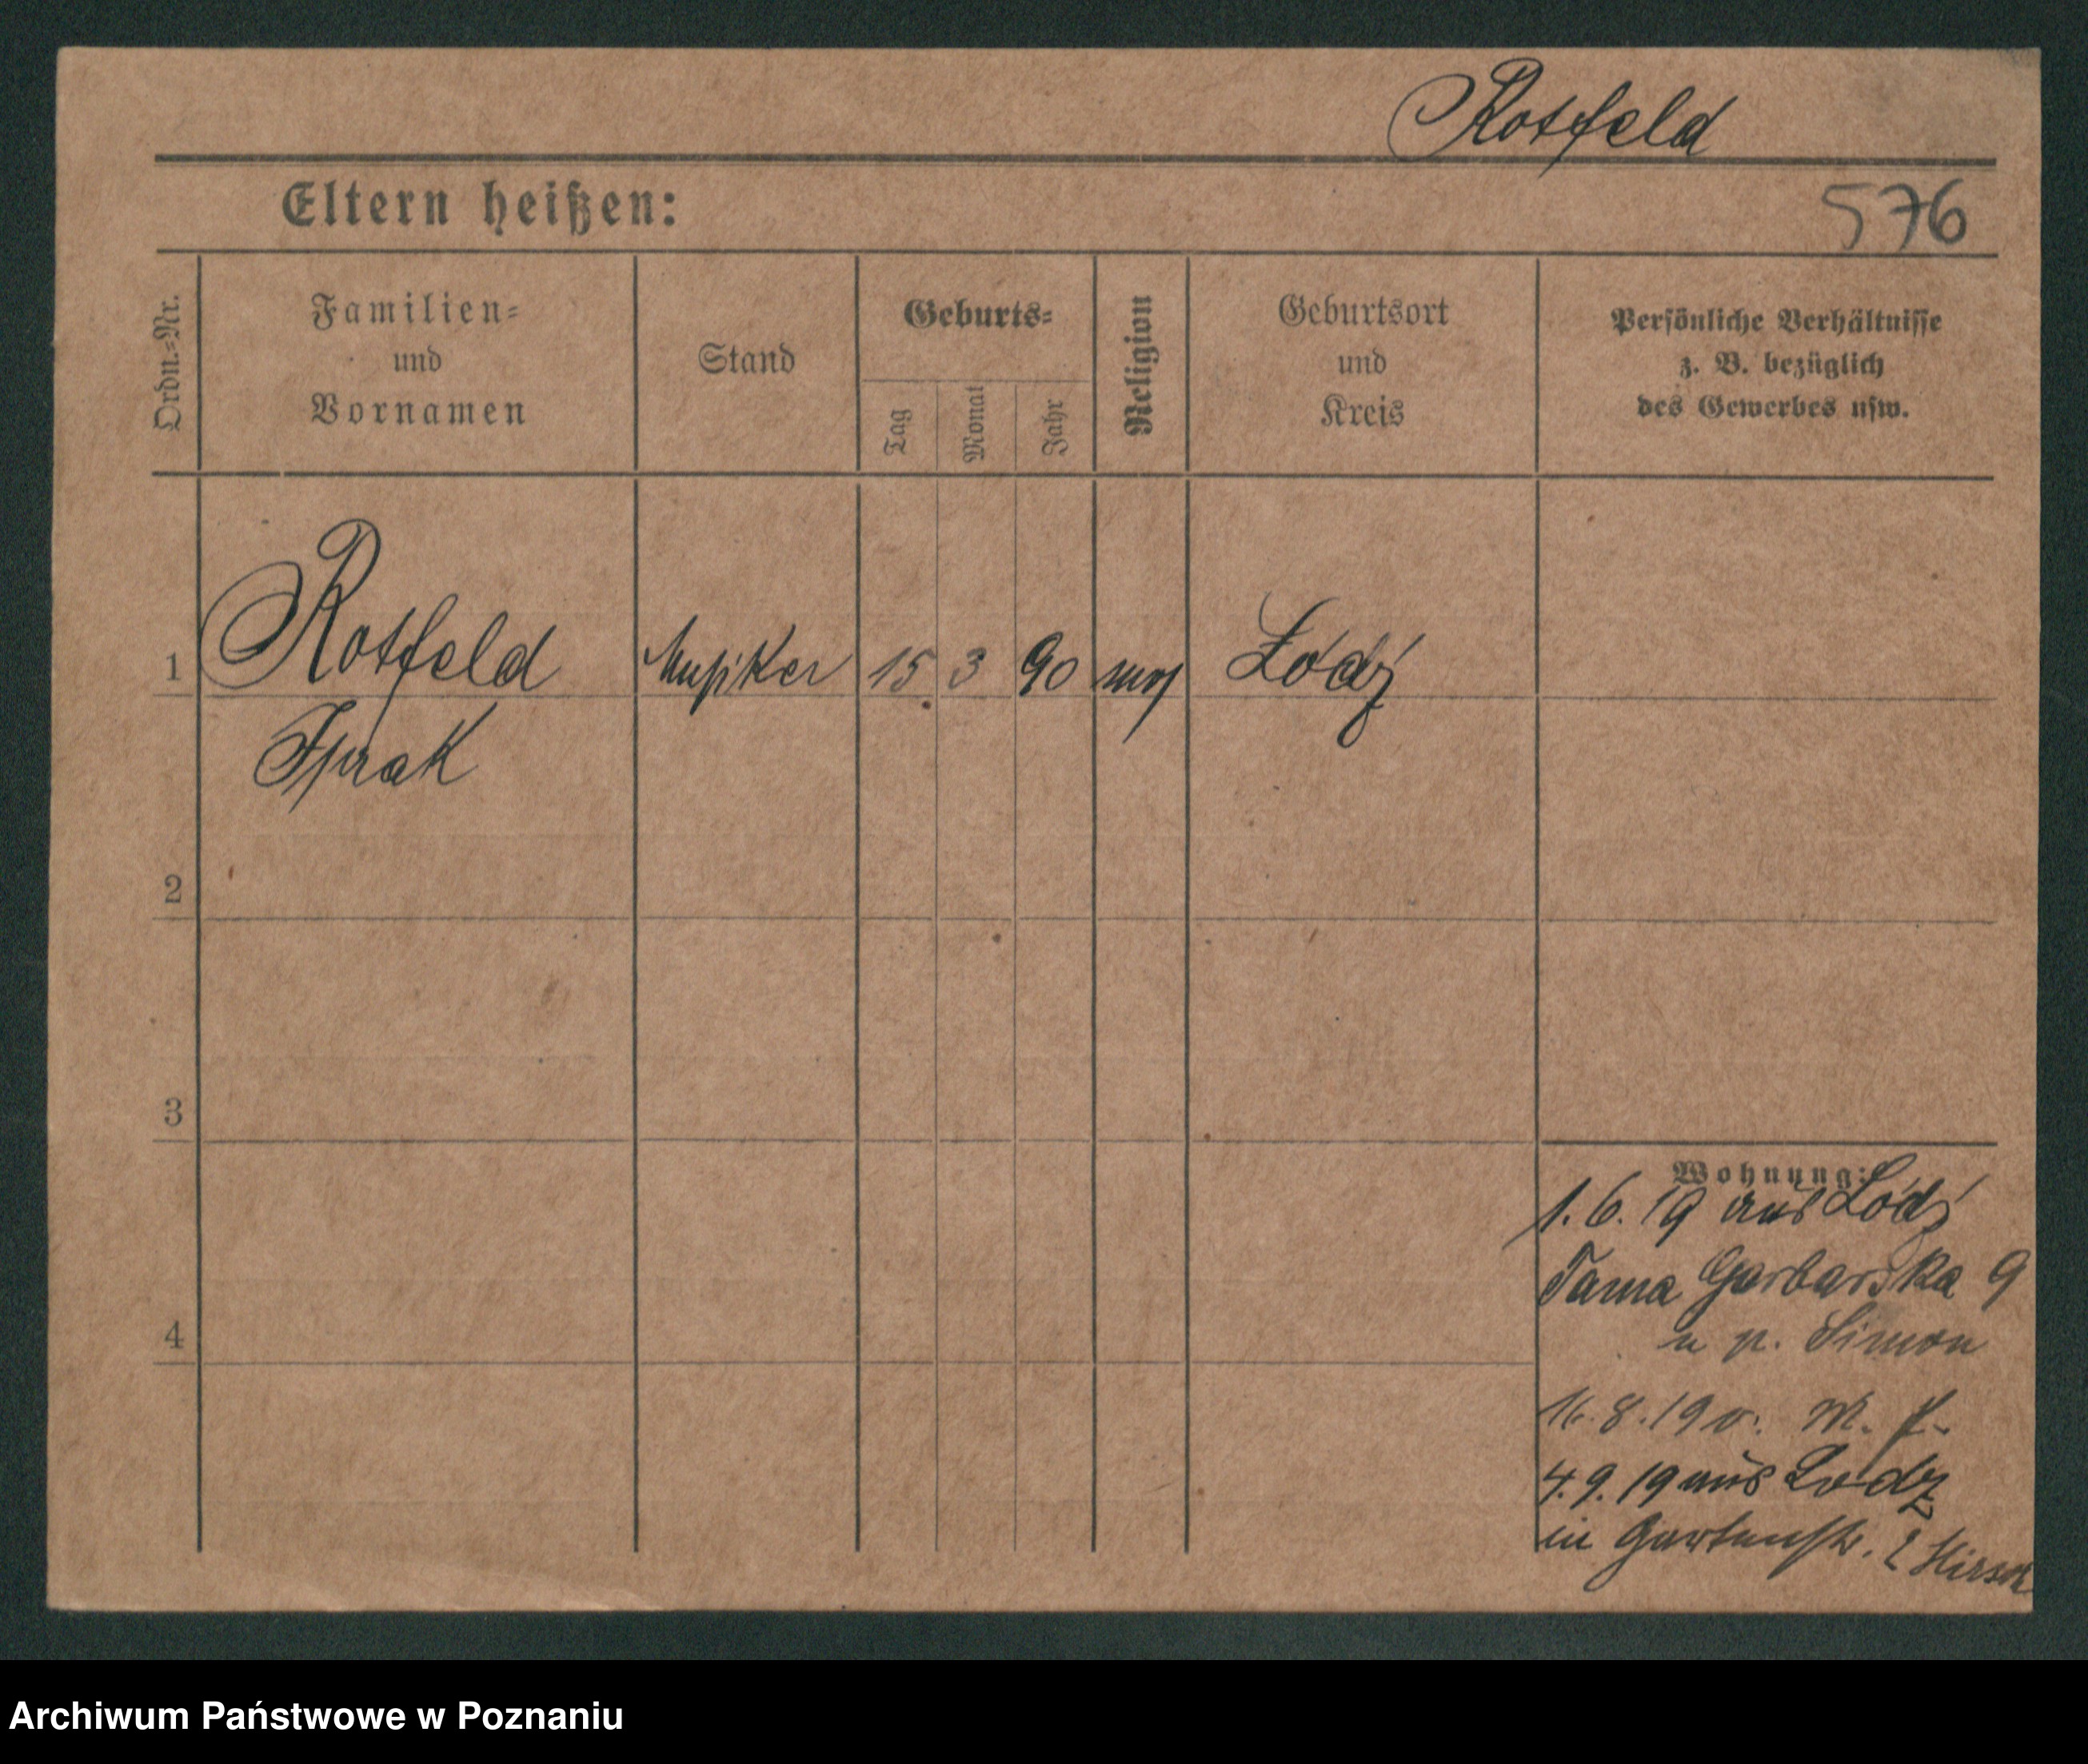 Rotfeld
Eltern heißen:
576
Ordn.=Nr.
Familien=
und
Vornamen
Stand
Geburts=
Tag
Monat
Jahr
Religion
Geburtsort
und
Kreis
Persönliche Verhältnisse
z. B. bezüglich
des Gewerbes usw.
1 Rotfeld Musiker 15 3 90 mos Łódź
Israk
2
3
4
Wohnung:
1. 6. 19 aus Łódź
Tama Garbarska 9
n p. Simon
16. 8. 19 v. M. f.
4. 9. 19 aus Lodz
in Gartenstr. 2 Hirsch
Archiwum Państwowe w Poznaniu